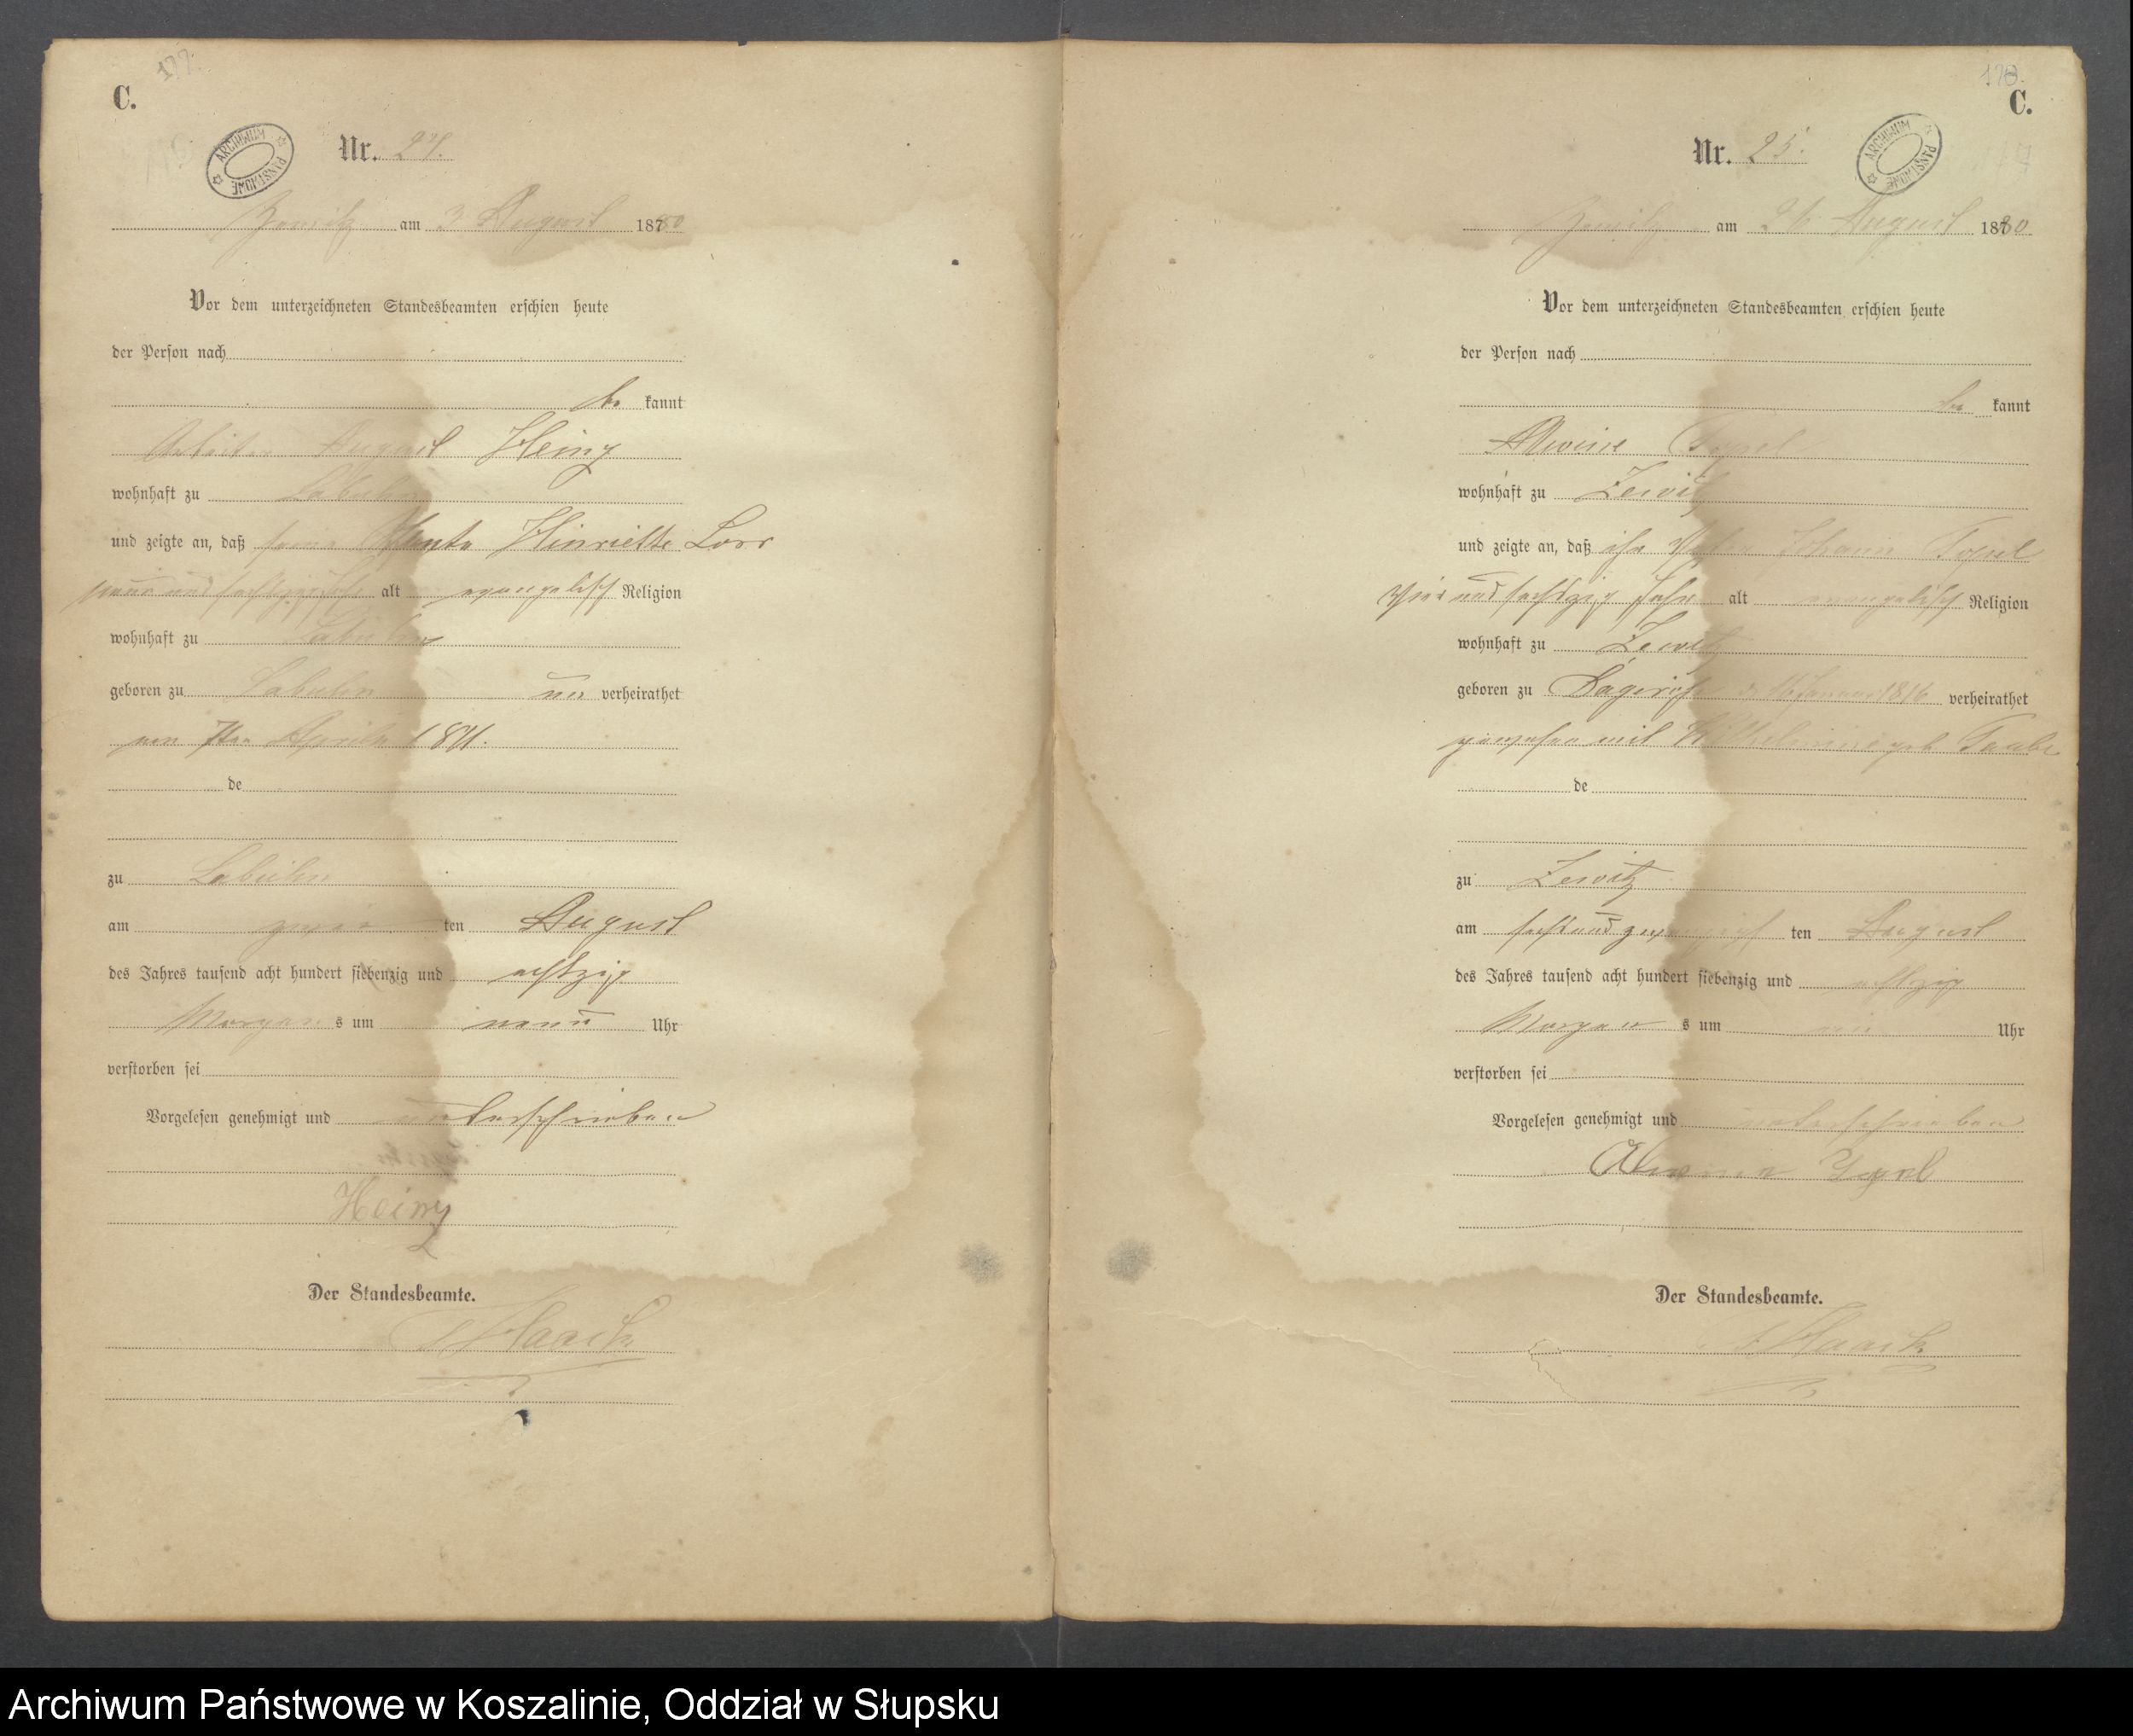 C.
Nr. 24.
am 3 August 1880
Vor dem unterzeichneten Standesbeamten erschien heute
der Person nach
be kannt
Arbeiter August Heinz
wohnhaft zu Labuhn
und zeigte an, daß seine Tante Hinriette Lorr
neun und sechszig Jahr alt evangelisch Religion
wohnhaft zu Labuhn
geboren zu Labuhn un verheirathet
am 7ten April 1811.
de
zu Labuhn
am zwei ten August
des Jahres tausend acht hundert siebenzig und achtzig
Morgen s um neun Uhr
verstorben sei
Vorgelesen genehmigt und unterschrieben
Heinz
Der Standesbeamte.
Haack
C.
Nr. 25.
am 26 August 1880
Vor dem unterzeichneten Standesbeamten erschien heute
der Person nach
be kannt
Alwine Topel
wohnhaft zu Zewitz
und zeigte an, daß ihr Vater Johann Topel
Vier und sechszig Jahr alt evangelisch Religion
wohnhaft zu Zewitz
geboren zu 16 Januar 1816 verheirathet
gewesen mit Wilhelmine geb.
de
zu Zewitz
am sechsundzwanzigs ten August
des Jahres tausend acht hundert siebenzig und achtzig
Morgen s um Uhr
verstorben sei
Vorgelesen genehmigt und unterschrieben
Alwine Topel
Der Standesbeamte.
Haack
ARCHIWUM PAŃSTWOWE
ARCHIWUM PAŃSTWOWE
Archiwum Państwowe w Koszalinie, Oddział w Słupsku